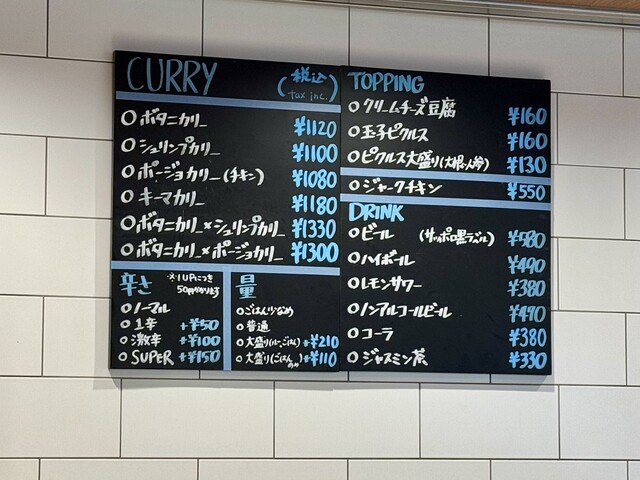 CURRY (税込 tax inc.)
○ボタニカリー ¥1120
○シュリンプカリー ¥1100
○ポージョカリー(チキン) ¥1080
○キーマカリー ¥1180
○ボタニカリー×シュリンプカリー ¥1330
○ボタニカリー×ポージョカリー ¥1300
辛さ ※1UPにつき
50円かかります
○ノーマル
○1辛 +¥50
○激辛 +¥100
○SUPER +¥150
量
○ごはん少なめ
○普通
○大盛り(ルー、ごはん) +¥210
○大盛り(ごはんのみ) +¥110
TOPPING
○クリームチーズ豆腐 ¥160
○玉子ピクルス ¥160
○ピクルス大盛り(大根・人参) ¥130
○ジャークチキン ¥550
DRINK
○ビール (サッポロ黒ラベル) ¥580
○ハイボール ¥490
○レモンサワー ¥380
○ノンアルコールビール ¥490
○コーラ ¥380
○ジャスミン茶 ¥330